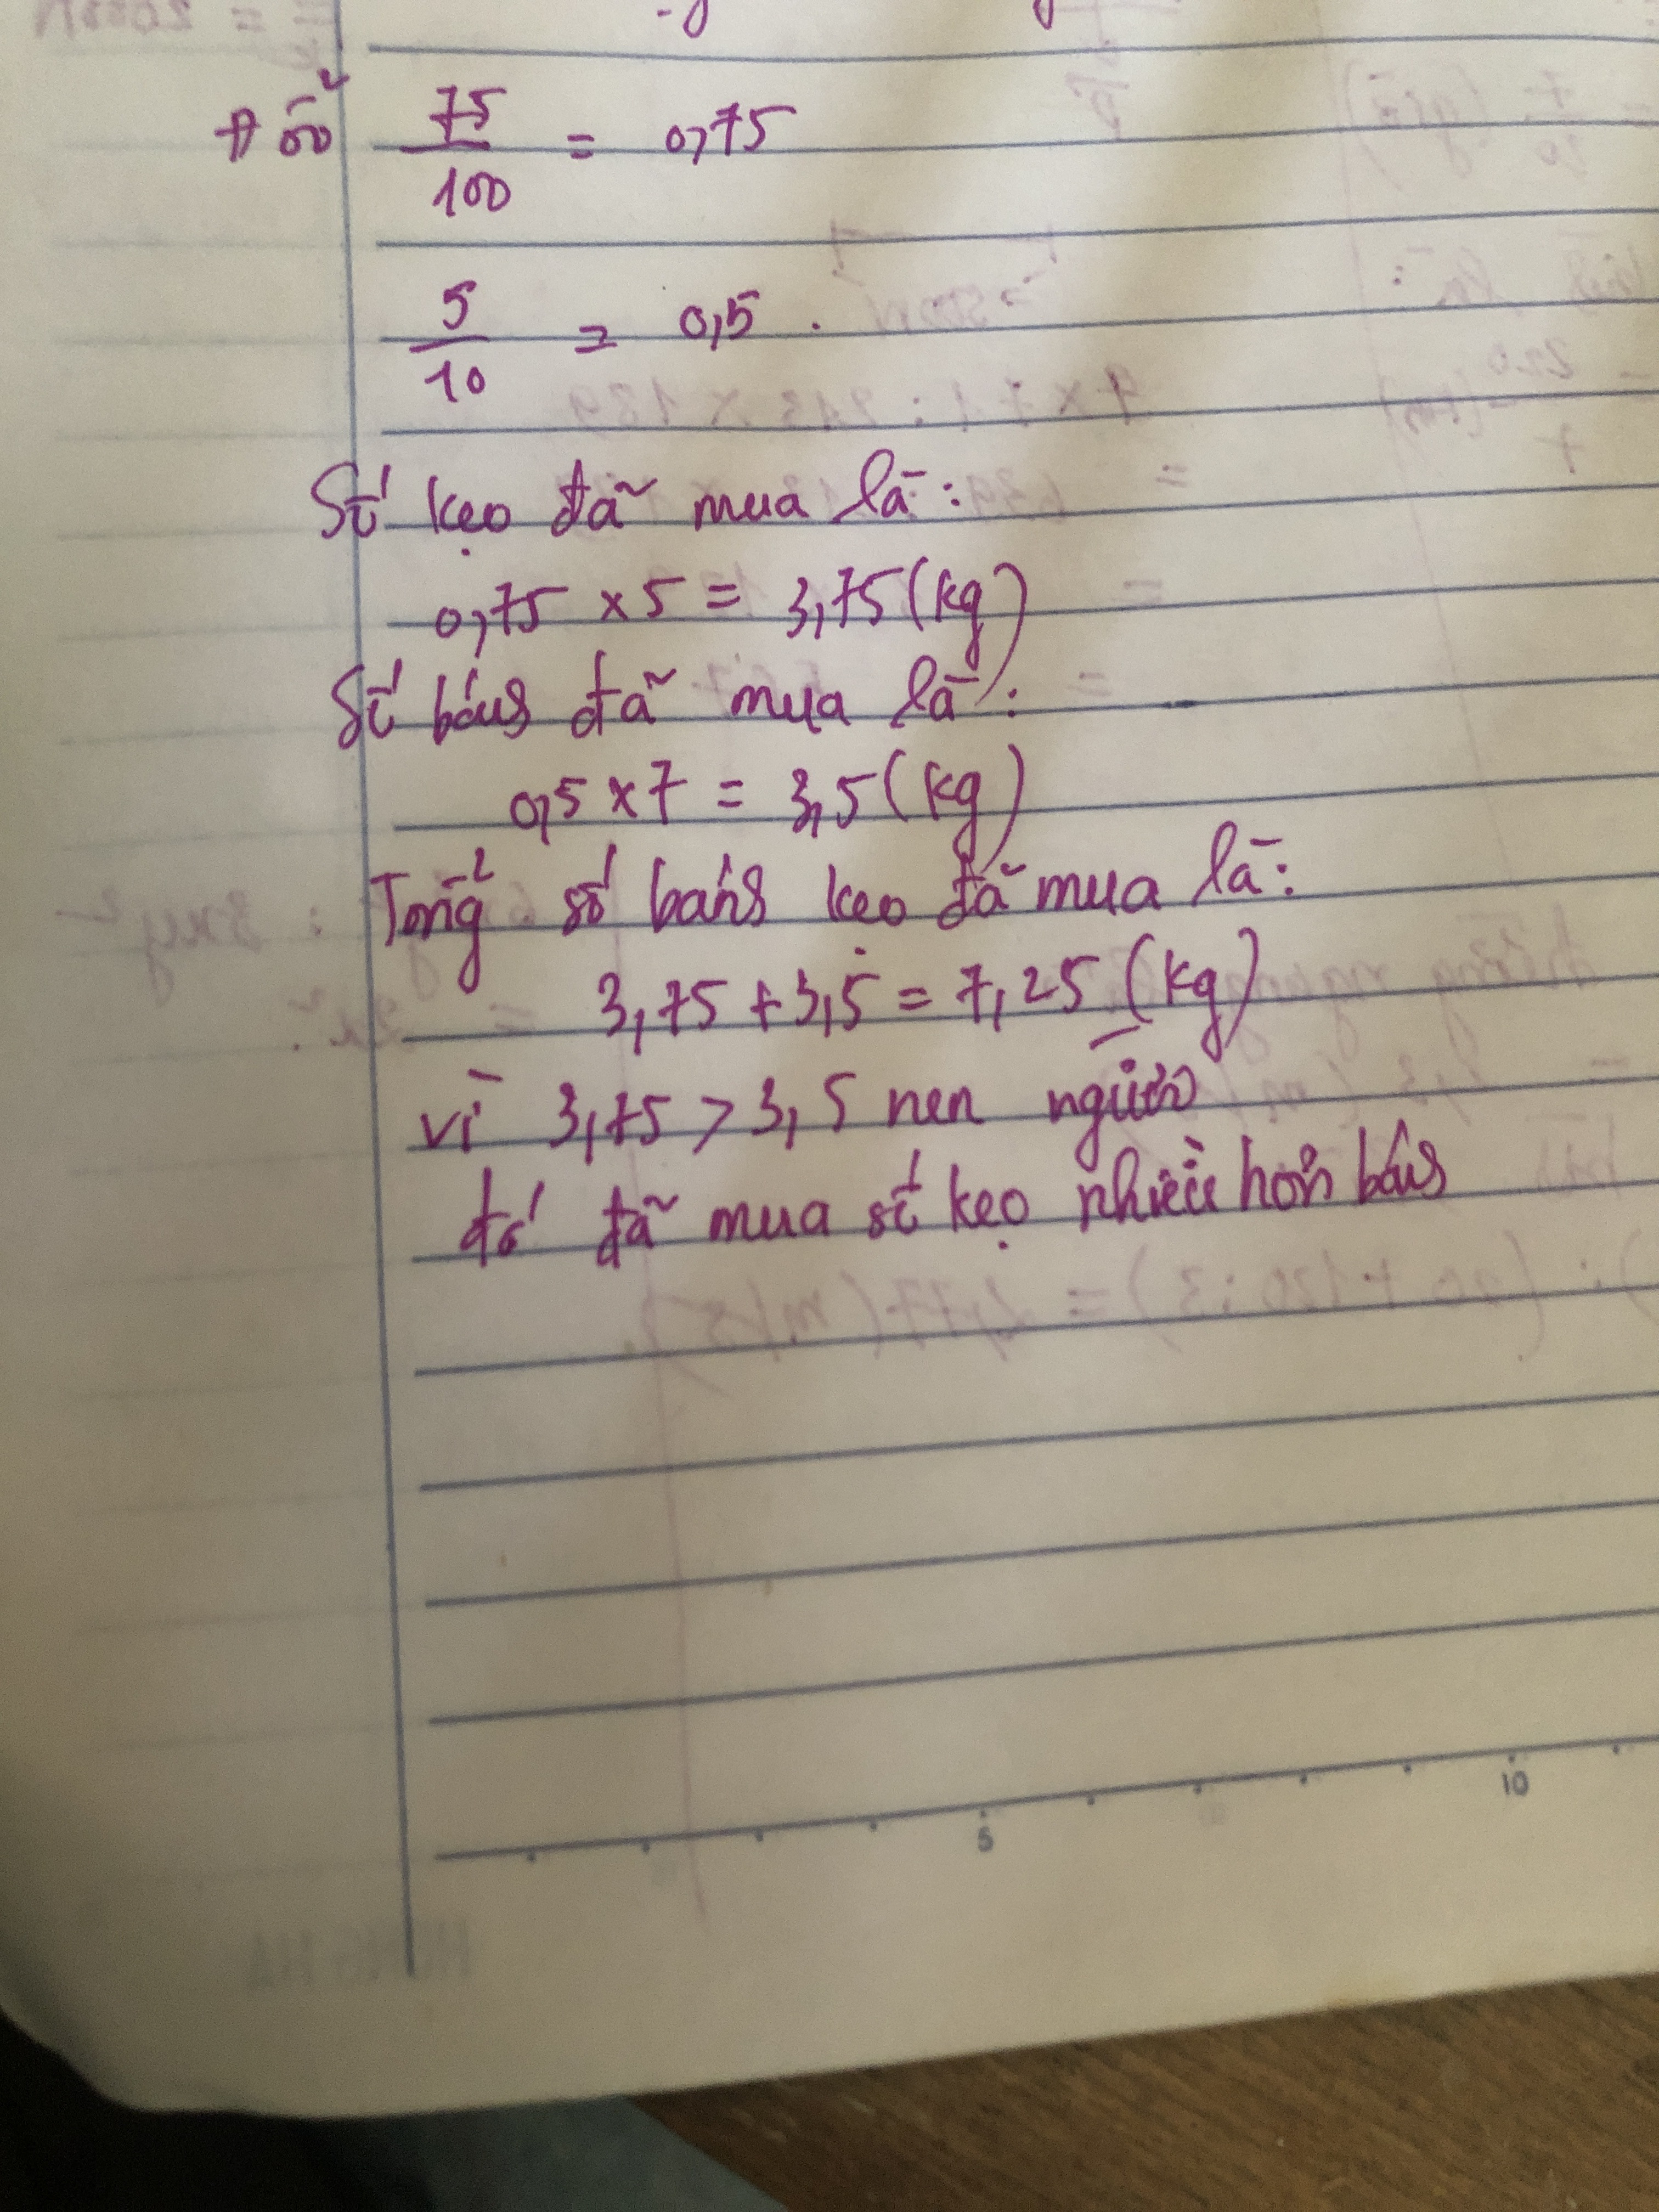 Đổi 75/100 = 0,75
5/10 = 0,5.
Số kẹo đã mua là:
0,75 x 5 = 3,75 (kg)
Số bánh đã mua là:
0,5 x 7 = 3,5 (kg)
Tổng số bánh kẹo đã mua là:
3,75 + 3,5 = 7,25 (kg)
vì 3,75 > 3,5 nên người
đó đã mua số kẹo nhiều hơn bánh
5 10